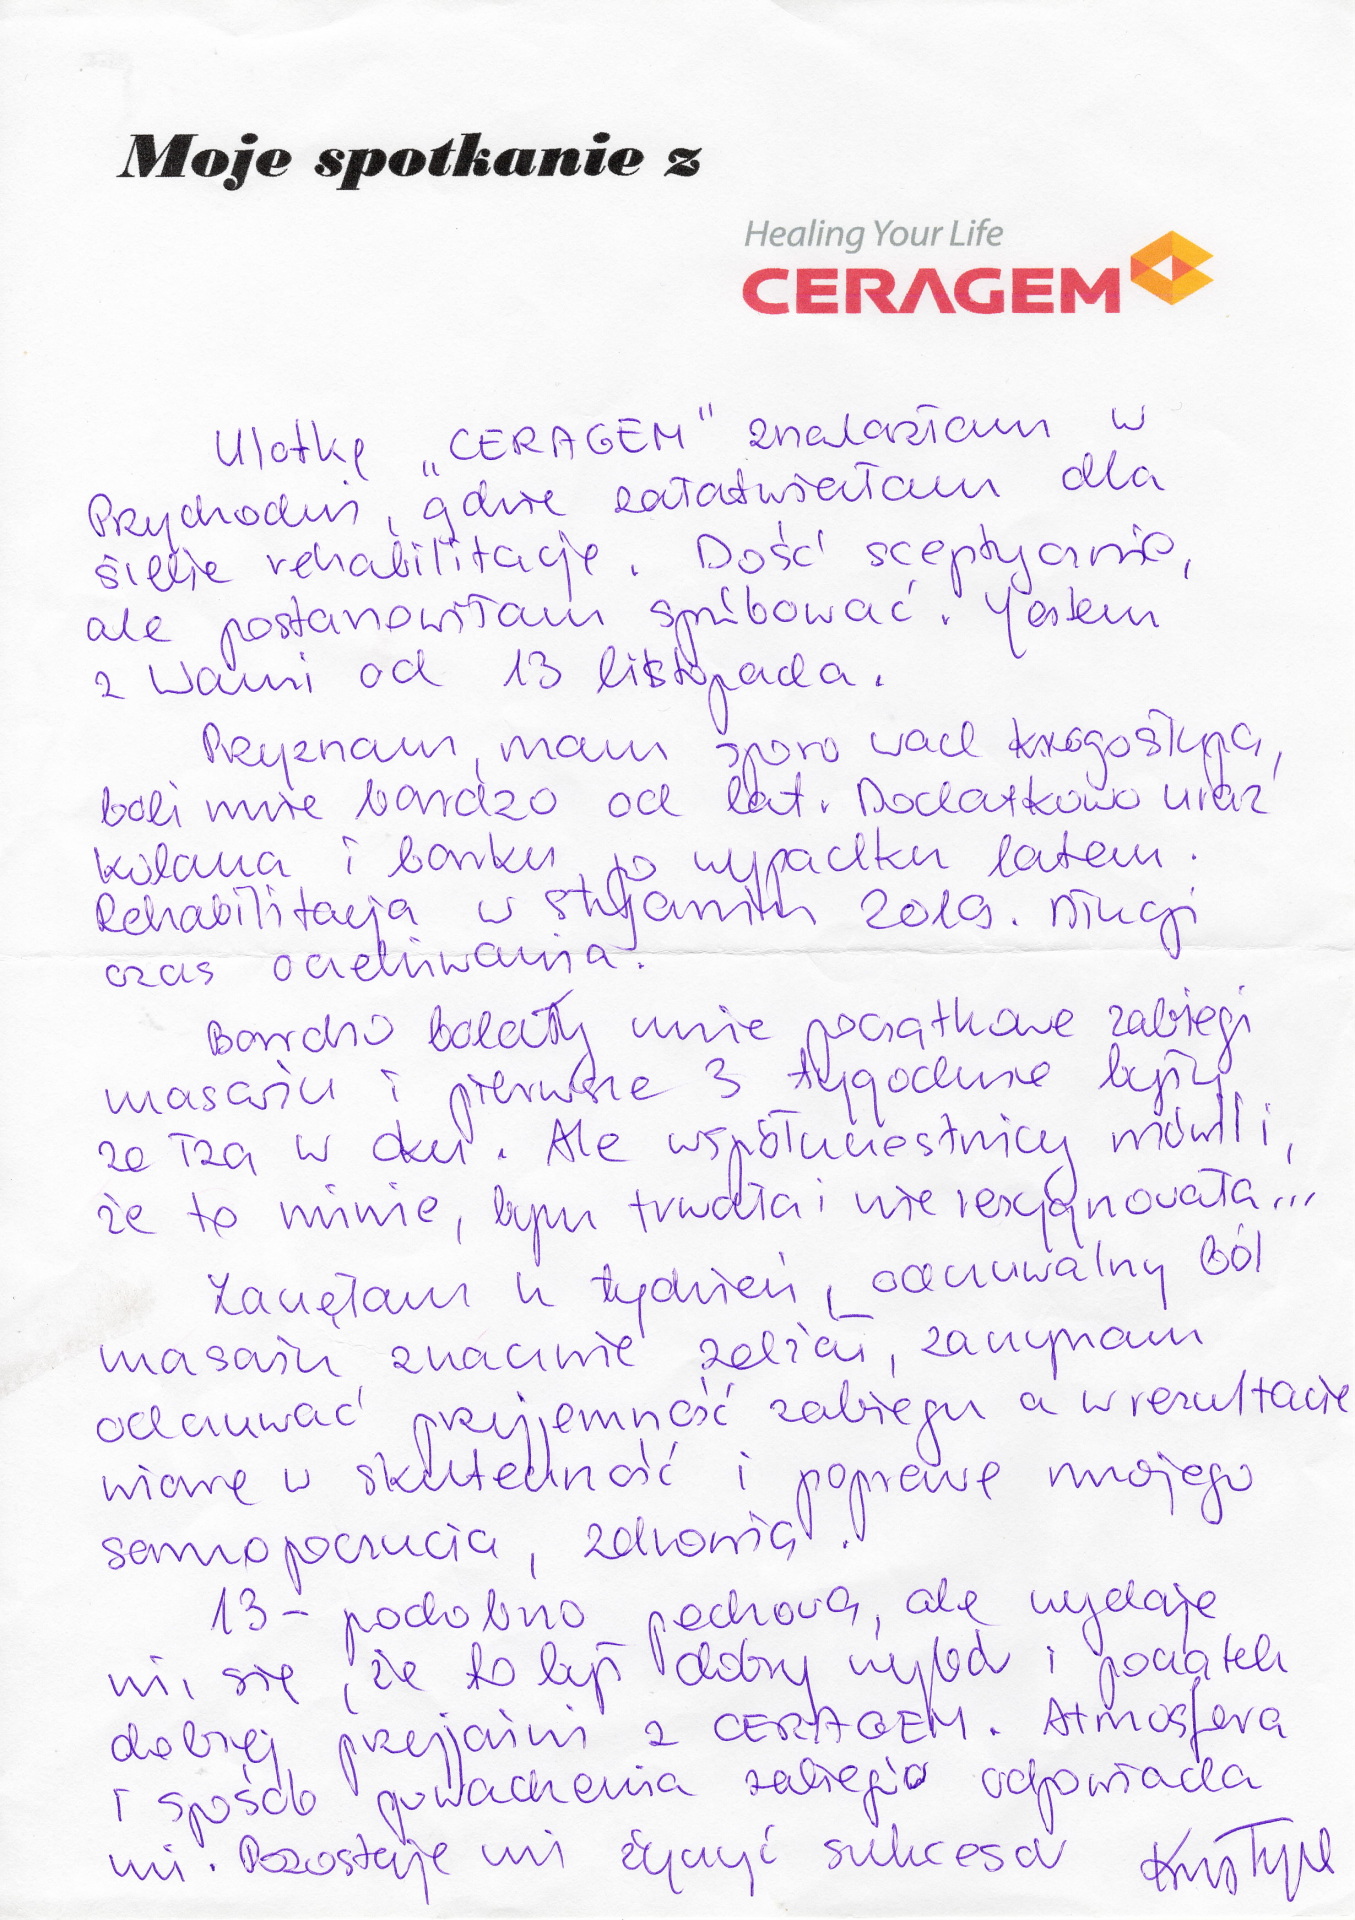 Moje spotkanie z
Healing Your Life
CERAGEM
Ulotkę „CERAGEM" znalazłam w
Przychodni, gdzie załatwiałam dla
siebie rehabilitację. Dość sceptycznie,
ale postanowiłam spróbować. Jestem
z Wami od 13 listopada.
Przyznam, mam sporo wad kręgosłupa,
boli mnie bardzo od lat. Dodatkowo uraz
kolana i barku po wypadku latem.
Rehabilitacja w styczniu 2019. Długi
czas oczekiwania.
Bardzo bolały mnie początkowe zabiegi
masażu i pierwsze 3 tygodnie były
ze łzą w oku. Ale współuczestnicy mówili,
że to minie, bym trwała i nie rezygnowała...
Zaczęłam 4 tydzień, odczuwalny ból
masażu znacznie zelżał, zaczynam
odczuwać przyjemność zabiegu a w rezultacie
wiarę w skuteczność i poprawę mojego
samopoczucia, zdrowia.
13 - podobno pechowa, ale wydaje
mi się, że to był dobry wybór i początek
dobrej przyjaźni z CERAGEM. Atmosfera
i sposób prowadzenia zabiegów odpowiada
mi. Pozostaje mi życzyć sukcesów